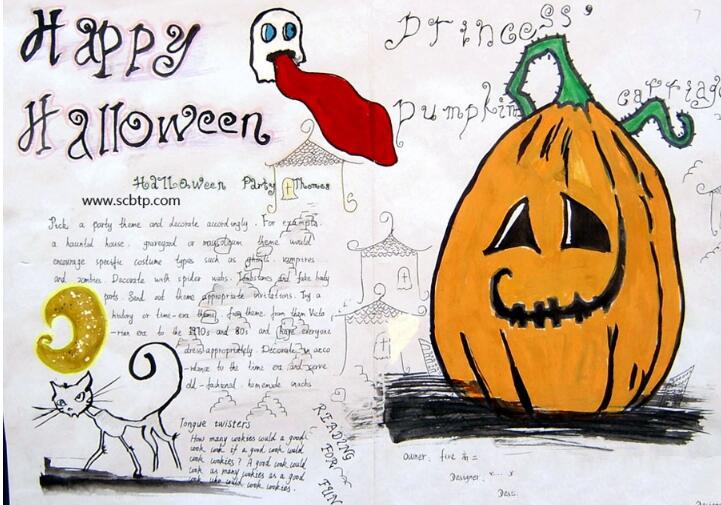 Happy
Halloween
Princess'
pumpkin carriage
Halloween Party Themes
www.scbtp.com
Pick a party theme and decorate accordingly. For example.
a haunted house, graveyard or mausoleum theme would
encourage specific costume types such as ghouls. vampires
and zombies. Decorate with spider webs. tombstones and fake body
parts. Send out theme appropriate invitations. Try a
history or time-era theme, theme from them Victo
-rian era to the 1970s and 80s and have everyone
dress appropriately. Decorate in acco
-rdance to the time era and serve
old-fashioned, homemade snacks
Tongue twisters
How many cookies could a good
cook cook if a good cook could
cook cookies? A good cook could
cook as many cookies as a good
cook who could cook cookies.
READING
FOR
FUN
owner: five
Designer:
Des: